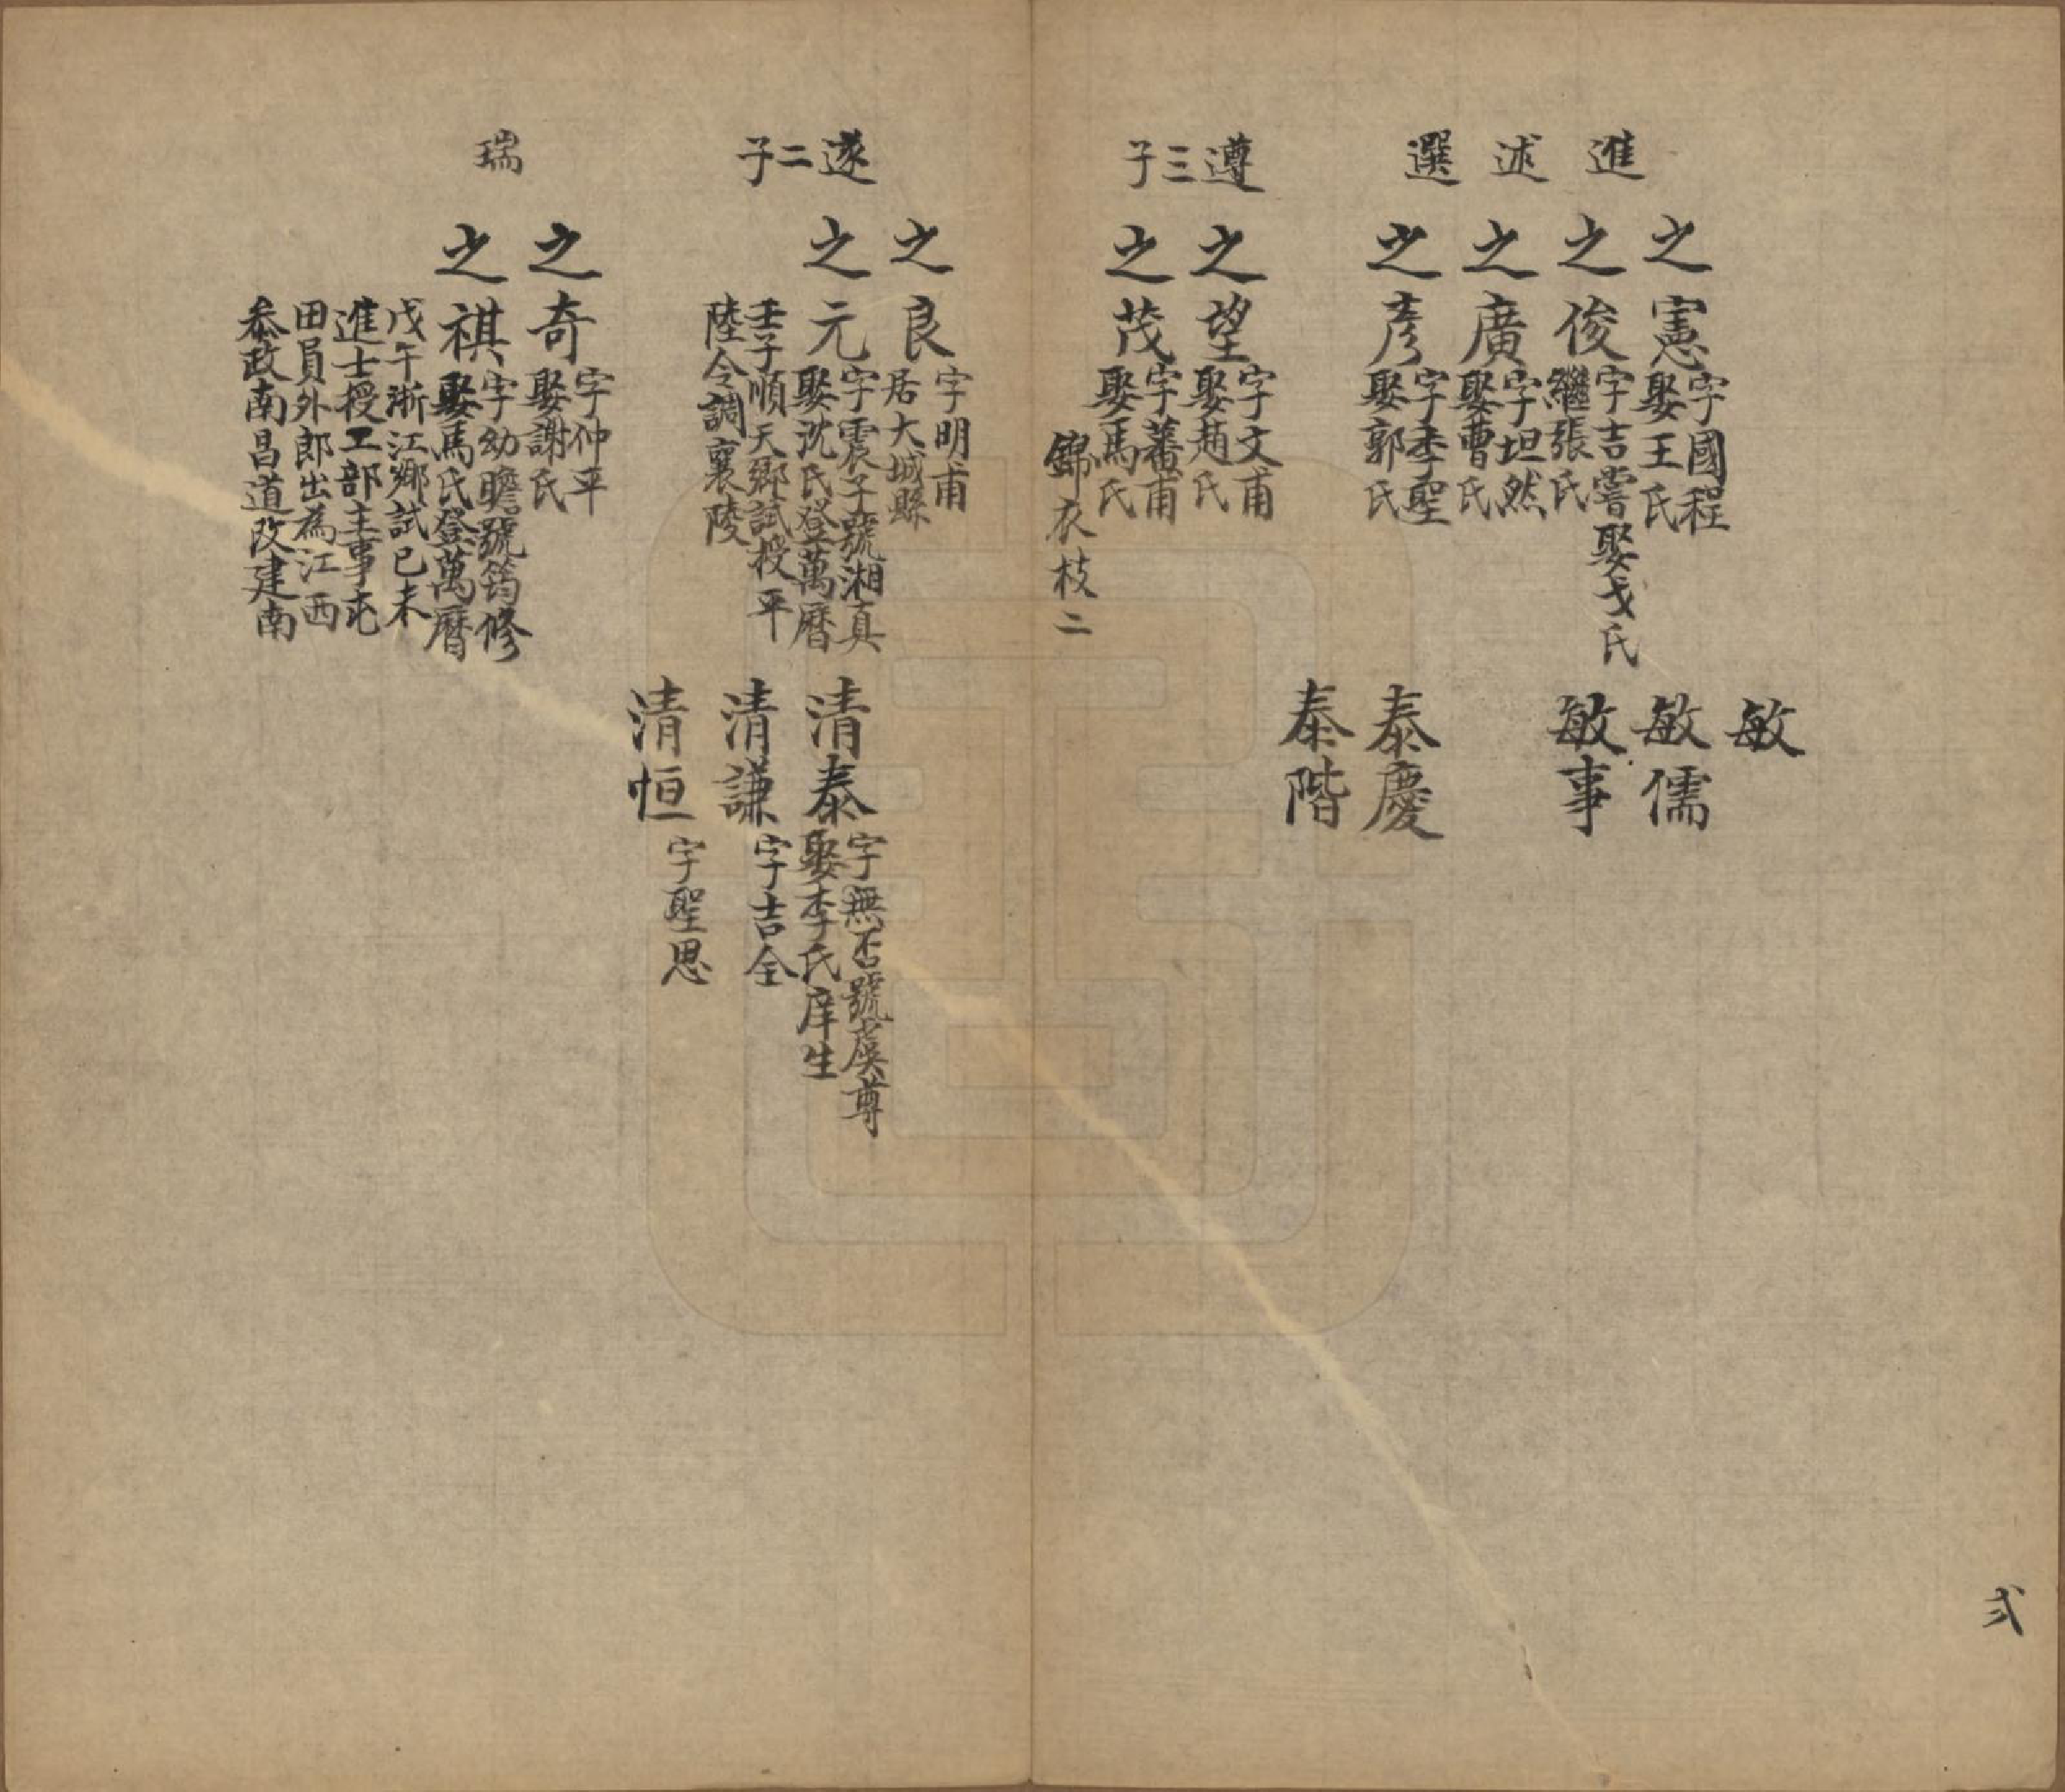 進
述
選
遵三子
之憲 字國程
娶王氏
之俊 字吉雲娶戈氏
繼張氏
之廣 字坦然
娶曹氏
之彥 字季聖
娶郭氏
之望 字文甫
娶趙氏
之茂 字蕃甫
娶馬氏
錦衣枝二
敏
敏儒
敏事
泰慶
泰階
弍
遂二子
瑞
之良 字明甫
居大城縣
之元 字震子號湘真
娶沈氏登萬曆
壬子順天鄉試授平
陸令調襄陵
之奇 字仲平
娶謝氏
之祺 字幼瞻號筠修
娶馬氏登萬曆
戊午浙江鄉試己未
進士授工部主事屯
田員外郎出為江西
叅政南昌道改建南
清泰 字無否號虞尊
娶李氏庠生
清謙 字吉全
清恒 字聖思